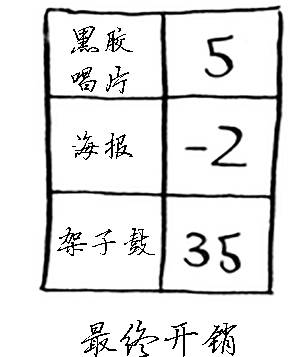 黑胶
唱片
5
海报
-2
架子鼓
35
最终开销